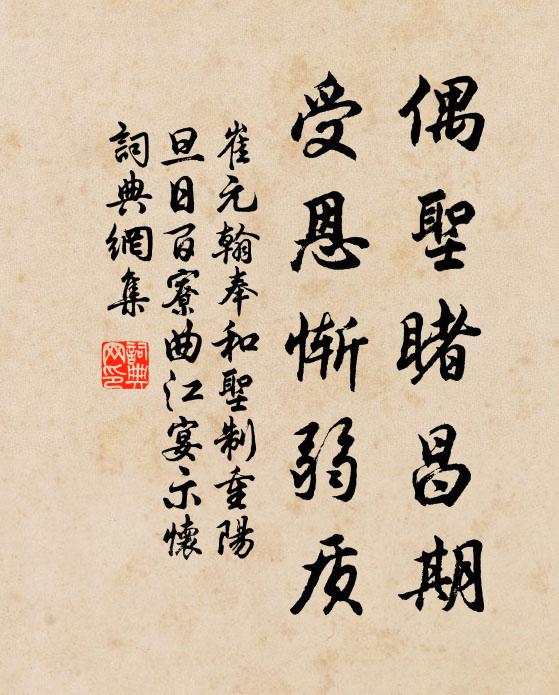 偶聖睹昌期
受恩惭弱质
崔元翰奉和聖制重陽
旦日百寮曲江宴示懷
詞典網集
詞典網印